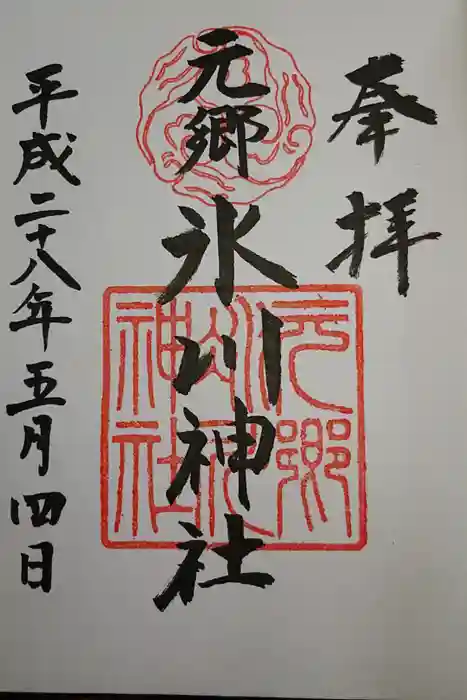 奉拝
元郷
氷川神社
平成二十八年五月四日
元郷
氷川
神社